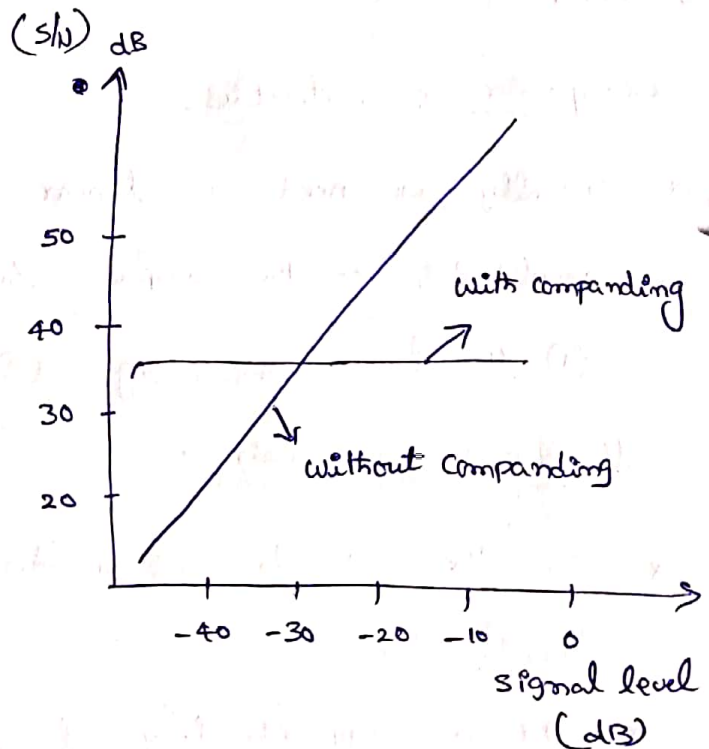 (S/N) dB
50
with companding
40
30
without companding
20
-40 -30 -20 -10 0
signal level
(dB)